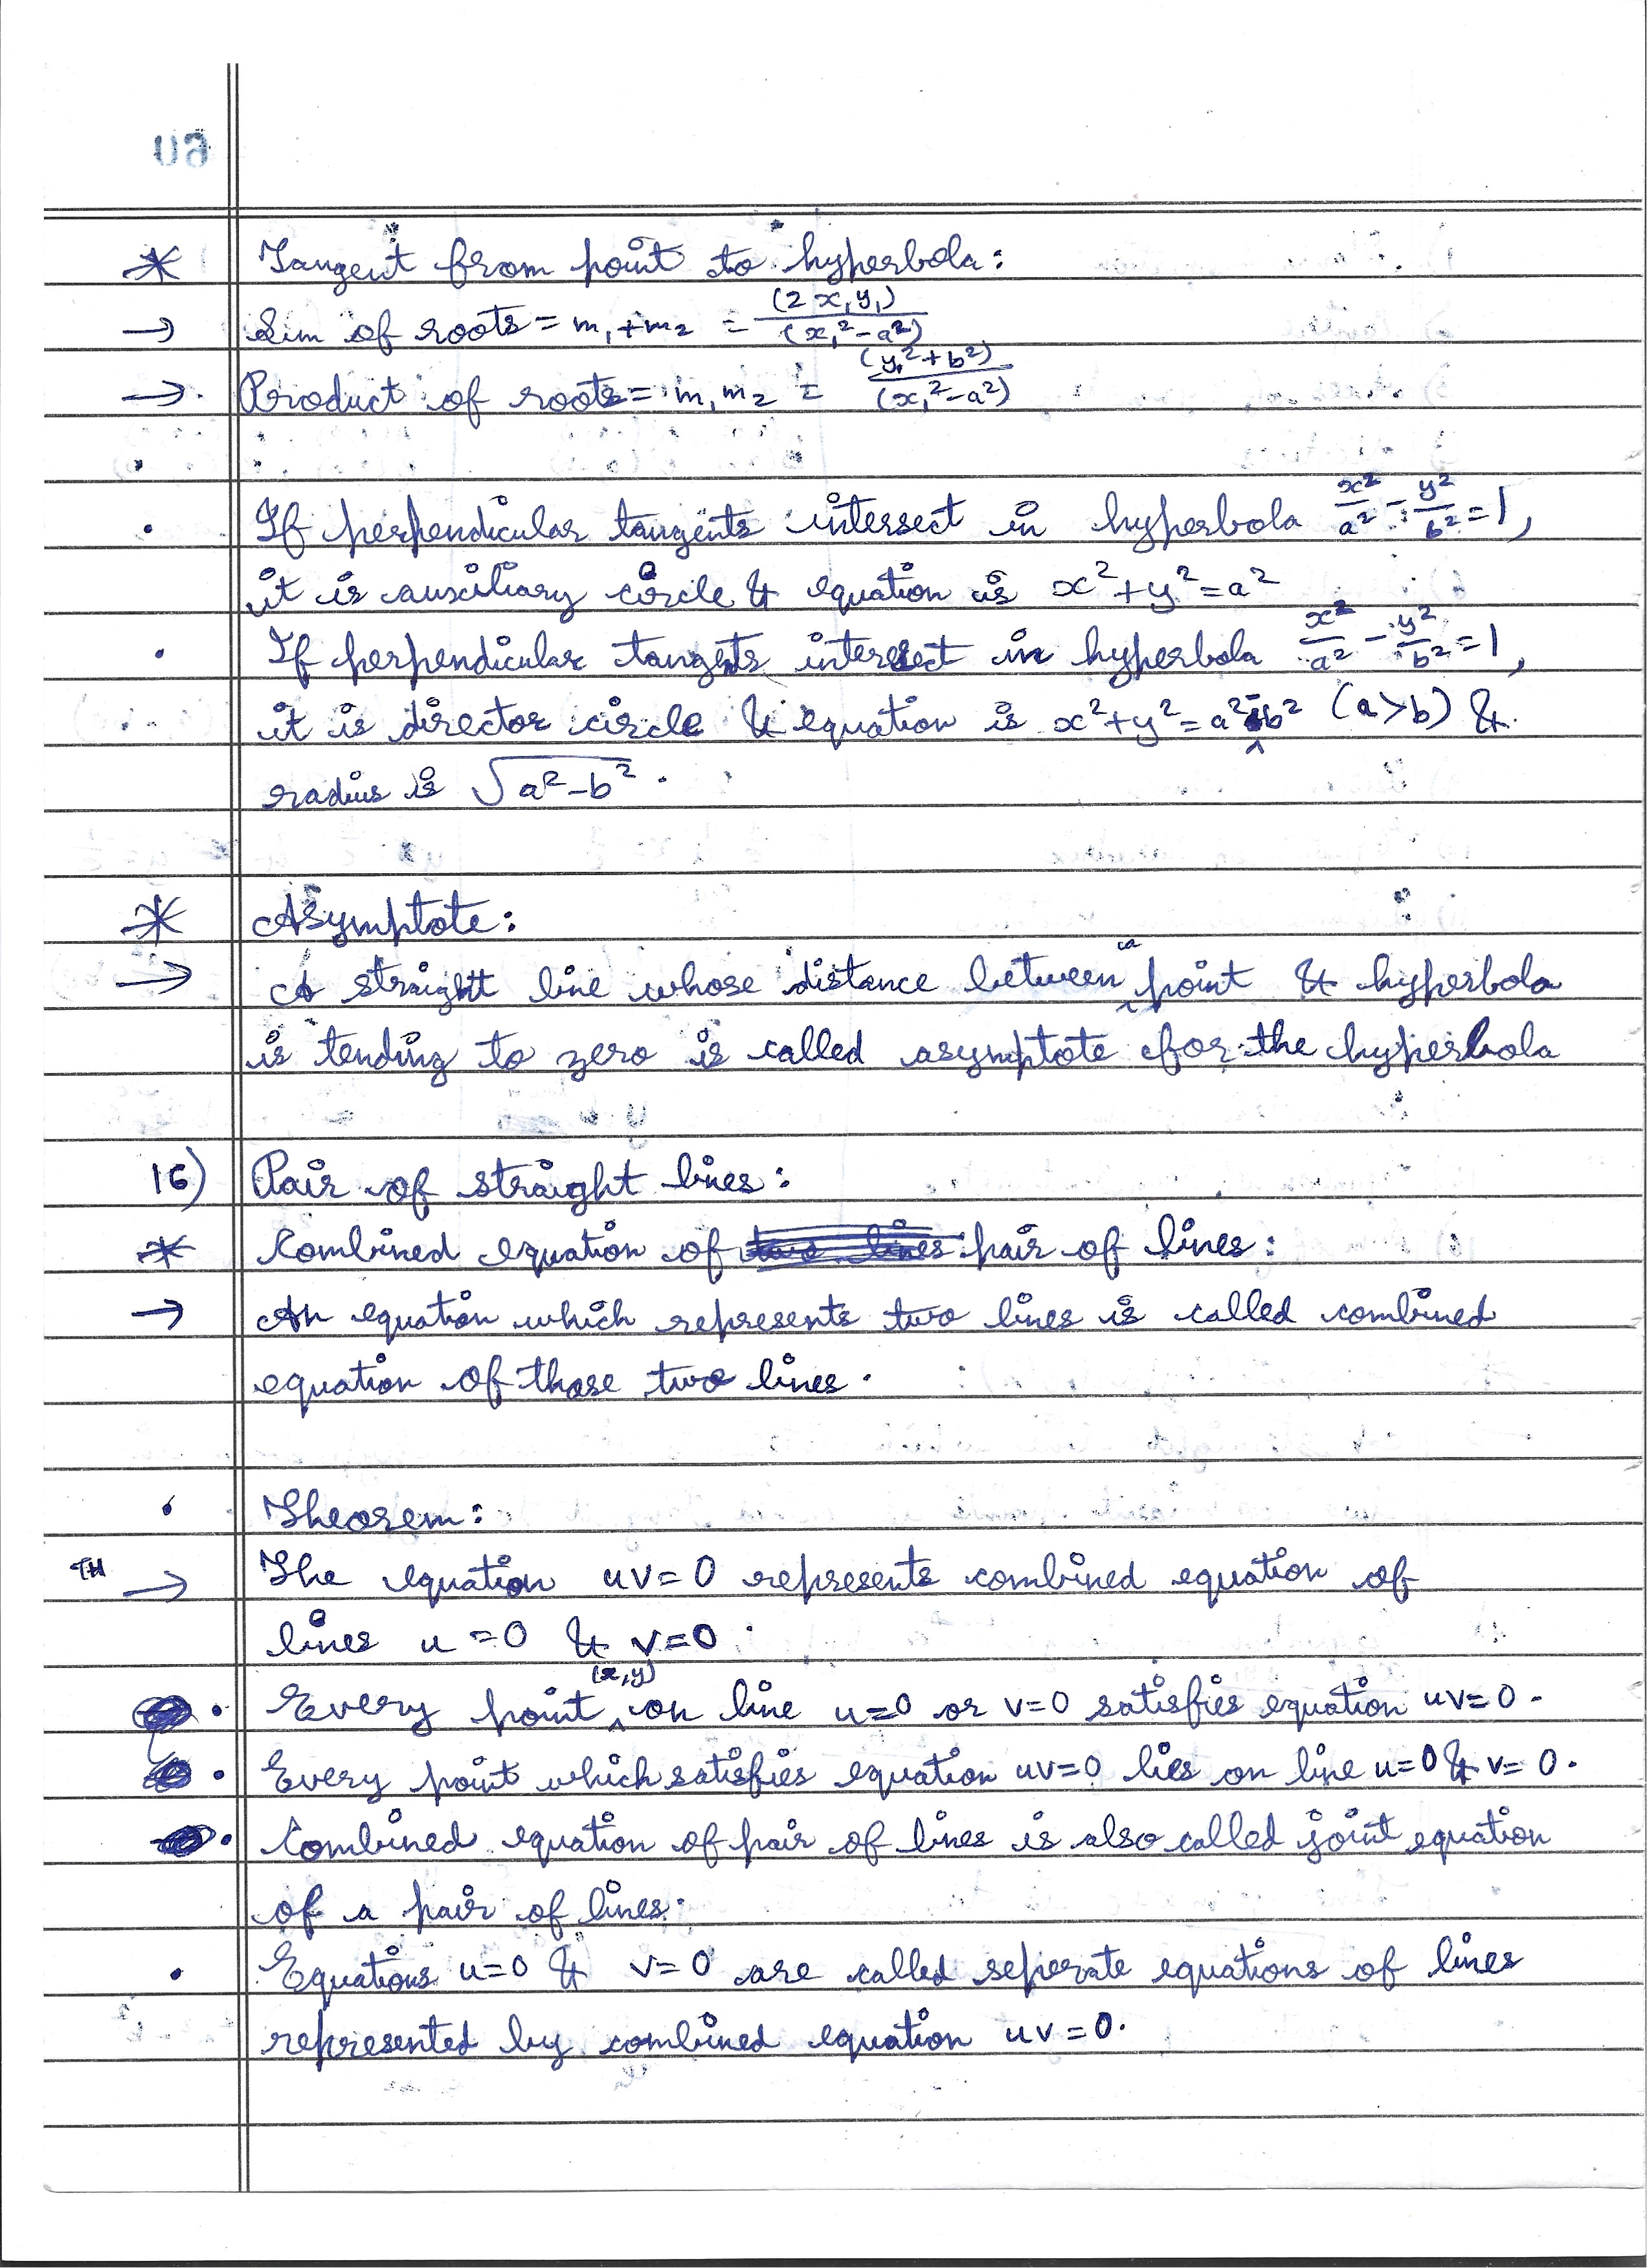 * Tangent from point to hyperbola:
→ Sum of roots = m₁+m₂ = (2x₁y₁)/(x₁²-a²)
→ Product of roots = m₁m₂ = (y₁²+b²)/(x₁²-a²)
. If perpendicular tangents intersect in hyperbola x²/a² - y²/b² = 1,
it is auxiliary circle & equation is x²+y²=a²
. If perpendicular tangents intersect in hyperbola x²/a² - y²/b² = 1,
it is director circle & equation is x²+y²=a²-b² (a>b) &
radius is √(a²-b²).
* Asymptote:
→ A straight line whose distance between a point & hyperbola
is tending to zero is called asymptote for the hyperbola
16) Pair of straight lines:
* Combined equation of pair of lines:
→ An equation which represents two lines is called combined
equation of those two lines.
. Theorem:
TH → The equation uv=0 represents combined equation of
lines u=0 & v=0.
. Every point (x,y) on line u=0 or v=0 satisfies equation uv=0.
. Every point which satisfies equation uv=0 lies on line u=0 & v=0.
. Combined equation of pair of lines is also called joint equation
of a pair of lines.
. Equations u=0 & v=0 are called seperate equations of lines
represented by combined equation uv=0.